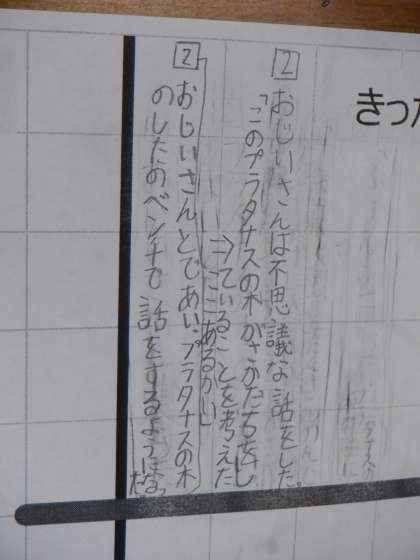 きっ
2 おじいさんは不思議な話をした。
「このプラタナスの木がさかだちをし
⇒ていることを考えた
ことあるかい」
2 おじいさんとであい、プラタナスの木
のしたのベンチで話をするようになっ
た。